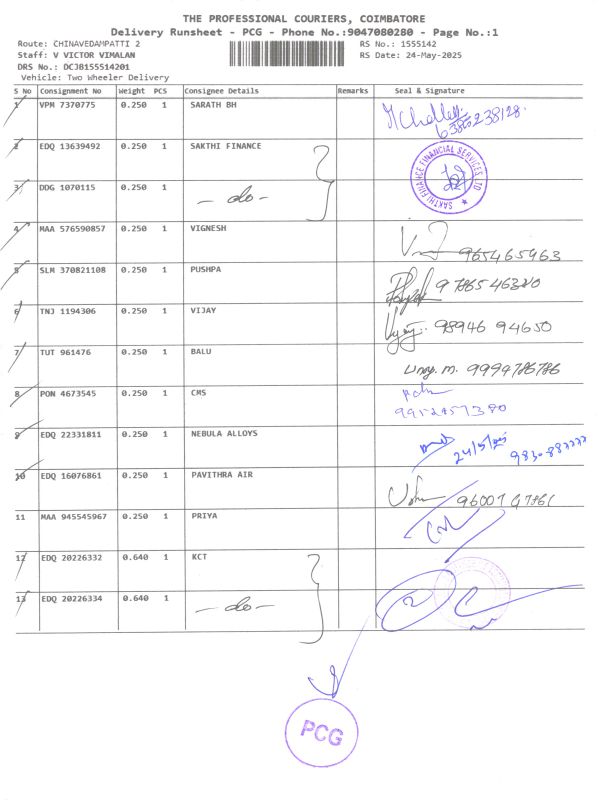 THE PROFESSIONAL COURIERS, COIMBATORE
Delivery Runsheet - PCG - Phone No.:9047080280 - Page No.:1
Route: CHINAVEDAMPATTI 2 RS No.: 1555142
Staff: V VICTOR VIMALAN RS Date: 24-May-2025
DRS No.: DCJ8155514201
Vehicle: Two Wheeler Delivery
S No Consignment No Weight PCS Consignee Details Remarks Seal & Signature
1 VPM 7370775 0.250 1 SARATH BH
2 EDQ 13639492 0.250 1 SAKTHI FINANCE SAKTHI FINANCE FINANCIAL SERVICES LTD
3 DDG 1070115 0.250 1 - do -
4 MAA 576590857 0.250 1 VIGNESH 965465963
5 SLM 370821108 0.250 1 PUSHPA 9786546320
6 TNJ 1194306 0.250 1 VIJAY Vijay 98946 94650
7 TUT 961476 0.250 1 BALU 9994786786
8 PON 4673545 0.250 1 CMS
9 EDQ 22331811 0.250 1 NEBULA ALLOYS
10 EDQ 16076861 0.250 1 PAVITHRA AIR
11 MAA 945545967 0.250 1 PRIYA
12 EDQ 20226332 0.640 1 KCT
13 EDQ 20226334 0.640 1 - do - 2
PCG